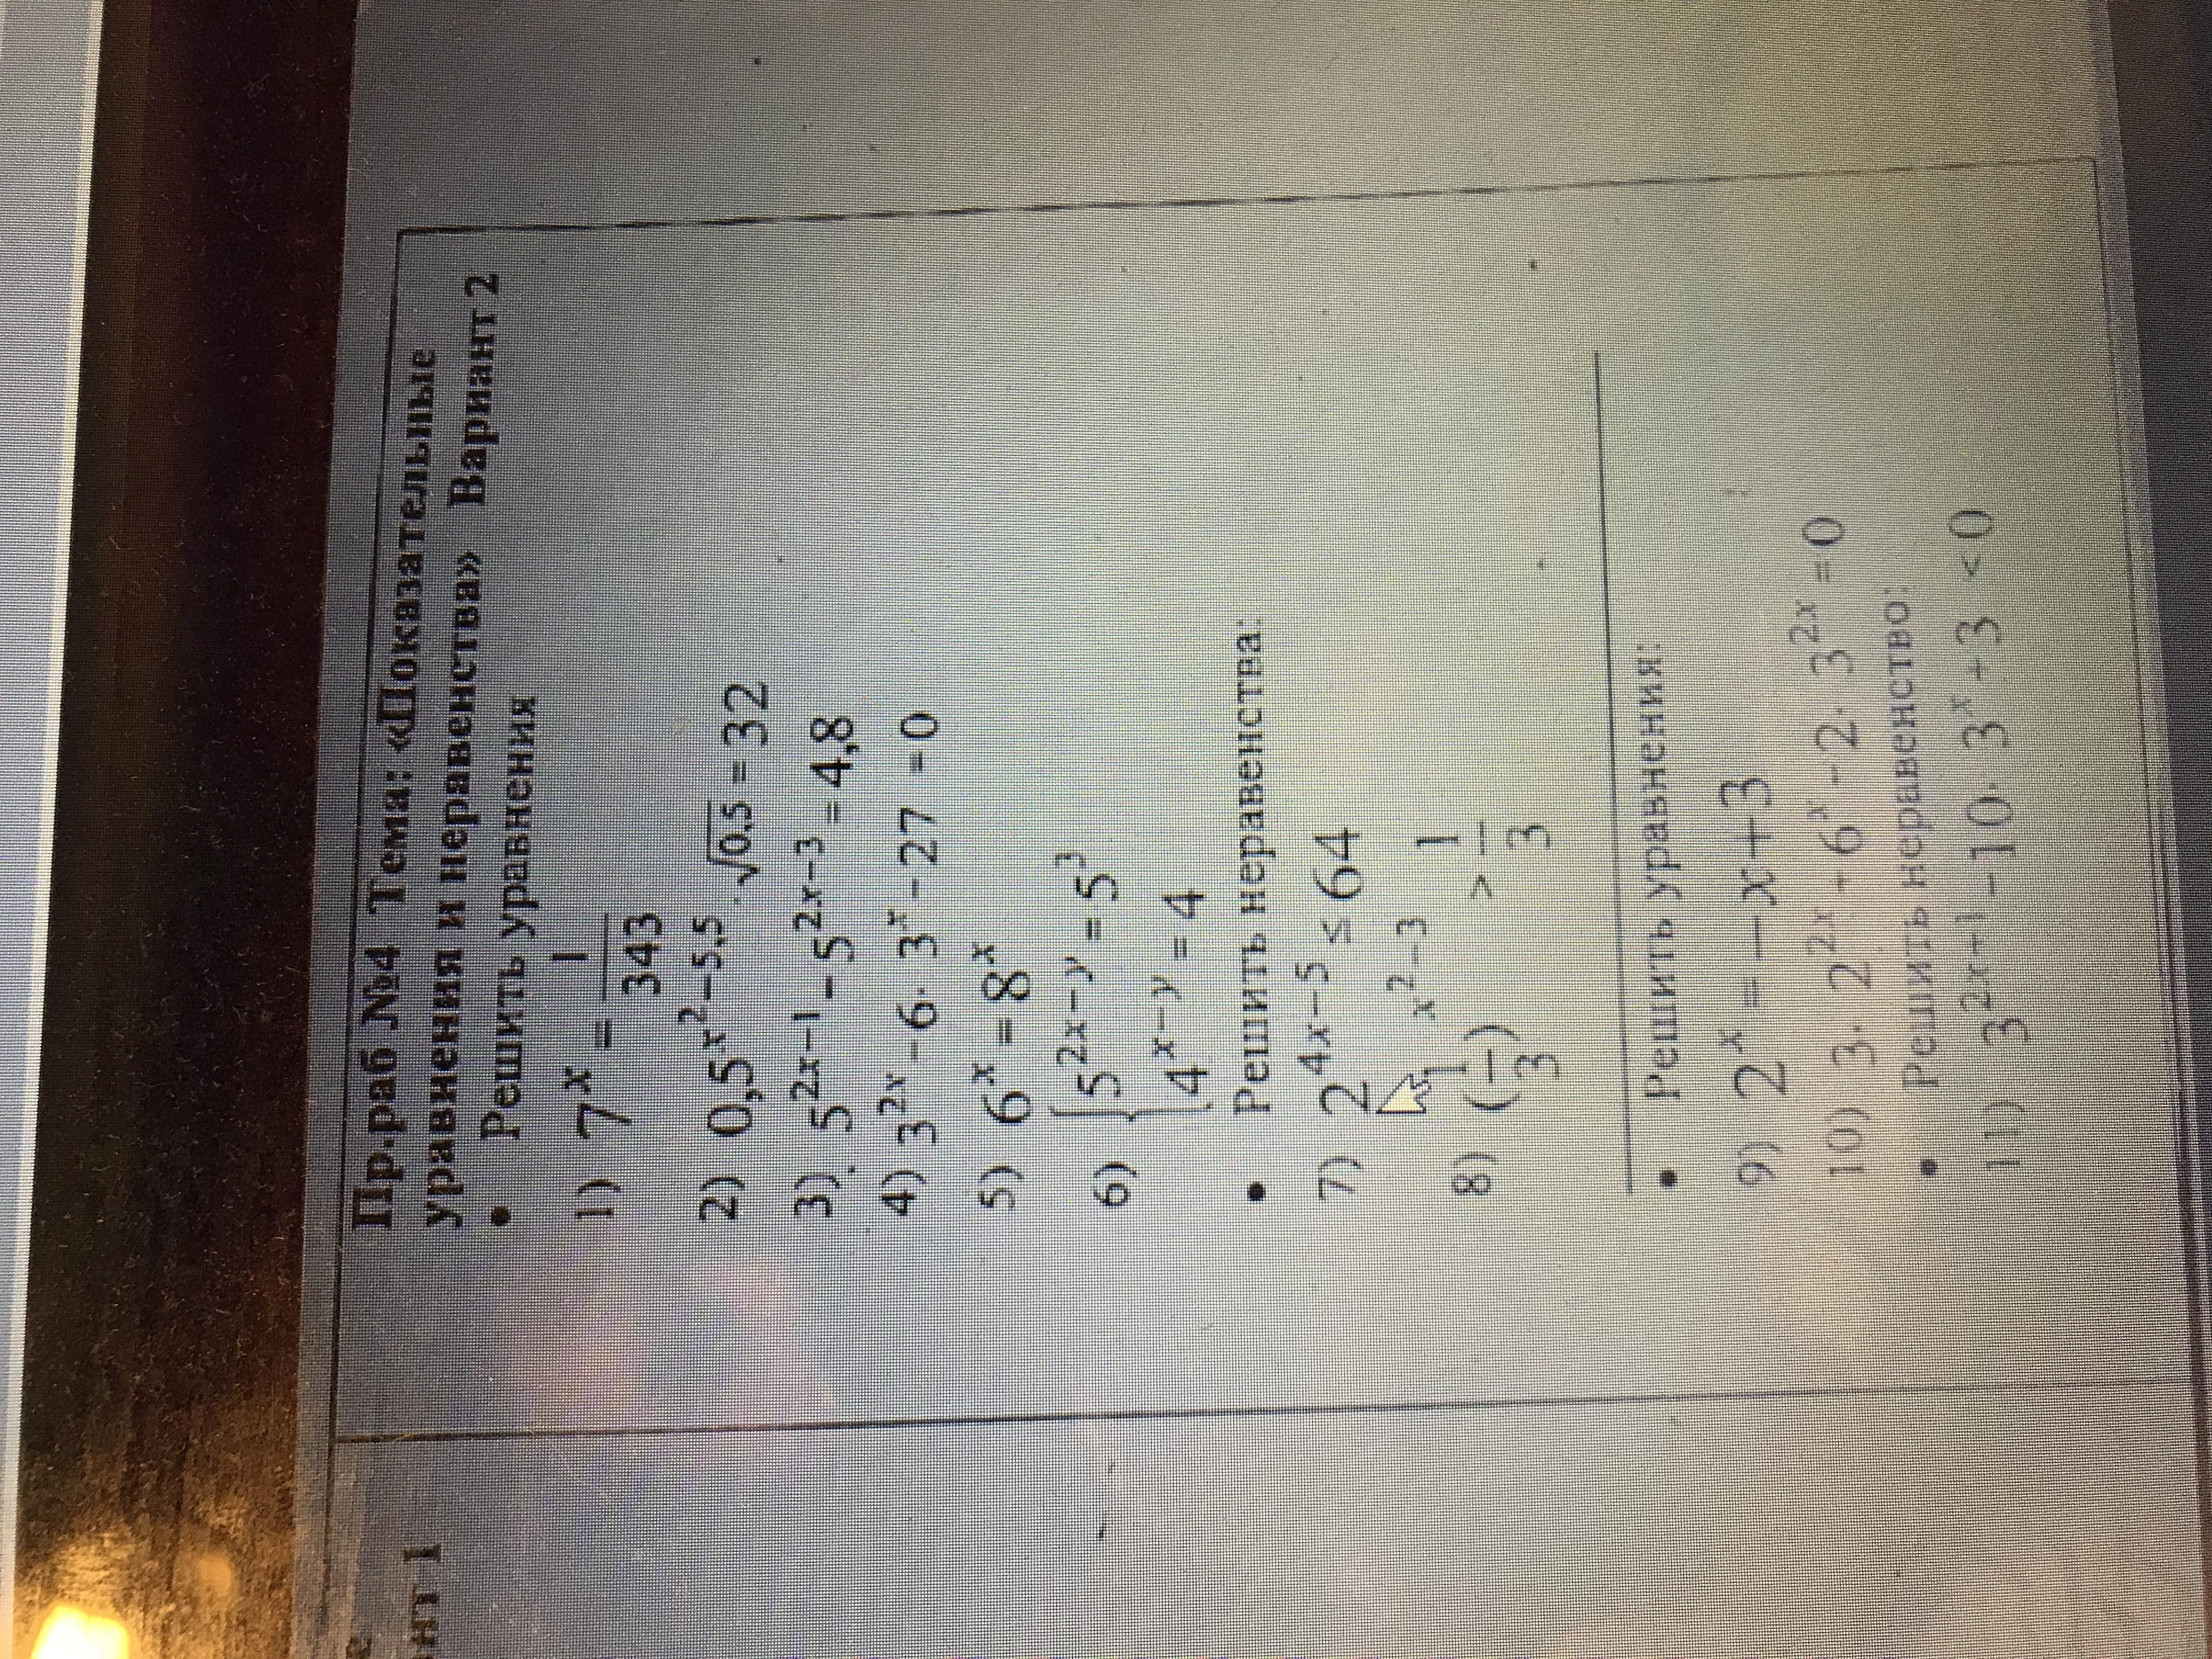 Пр.раб №4 Тема: «Показательные
уравнения и неравенства» Вариант 2
• Решить уравнения
1) 7^x = 1/343
2) 0,5^(x^2−5,5) · √0,5 = 32
3) 5^(2x−1) − 5^(2x−3) = 4,8
4) 3^(2x) − 6 · 3^x − 27 = 0
5) 6^x = 8^x
6) { 5^(2x−y) = 5^3
4^(x−y) = 4
• Решить неравенства:
7) 2^(4x−5) ≤ 64
8) (1/3)^(x^2−3) > 1/3
• Решить уравнения:
9) 2^x = −x+3
10) 3 · 2^(2x) + 6^x − 2 · 3^(2x) = 0
• Решить неравенство:
11) 3^(2x+1) − 10 · 3^x + 3 < 0
е
нт 1